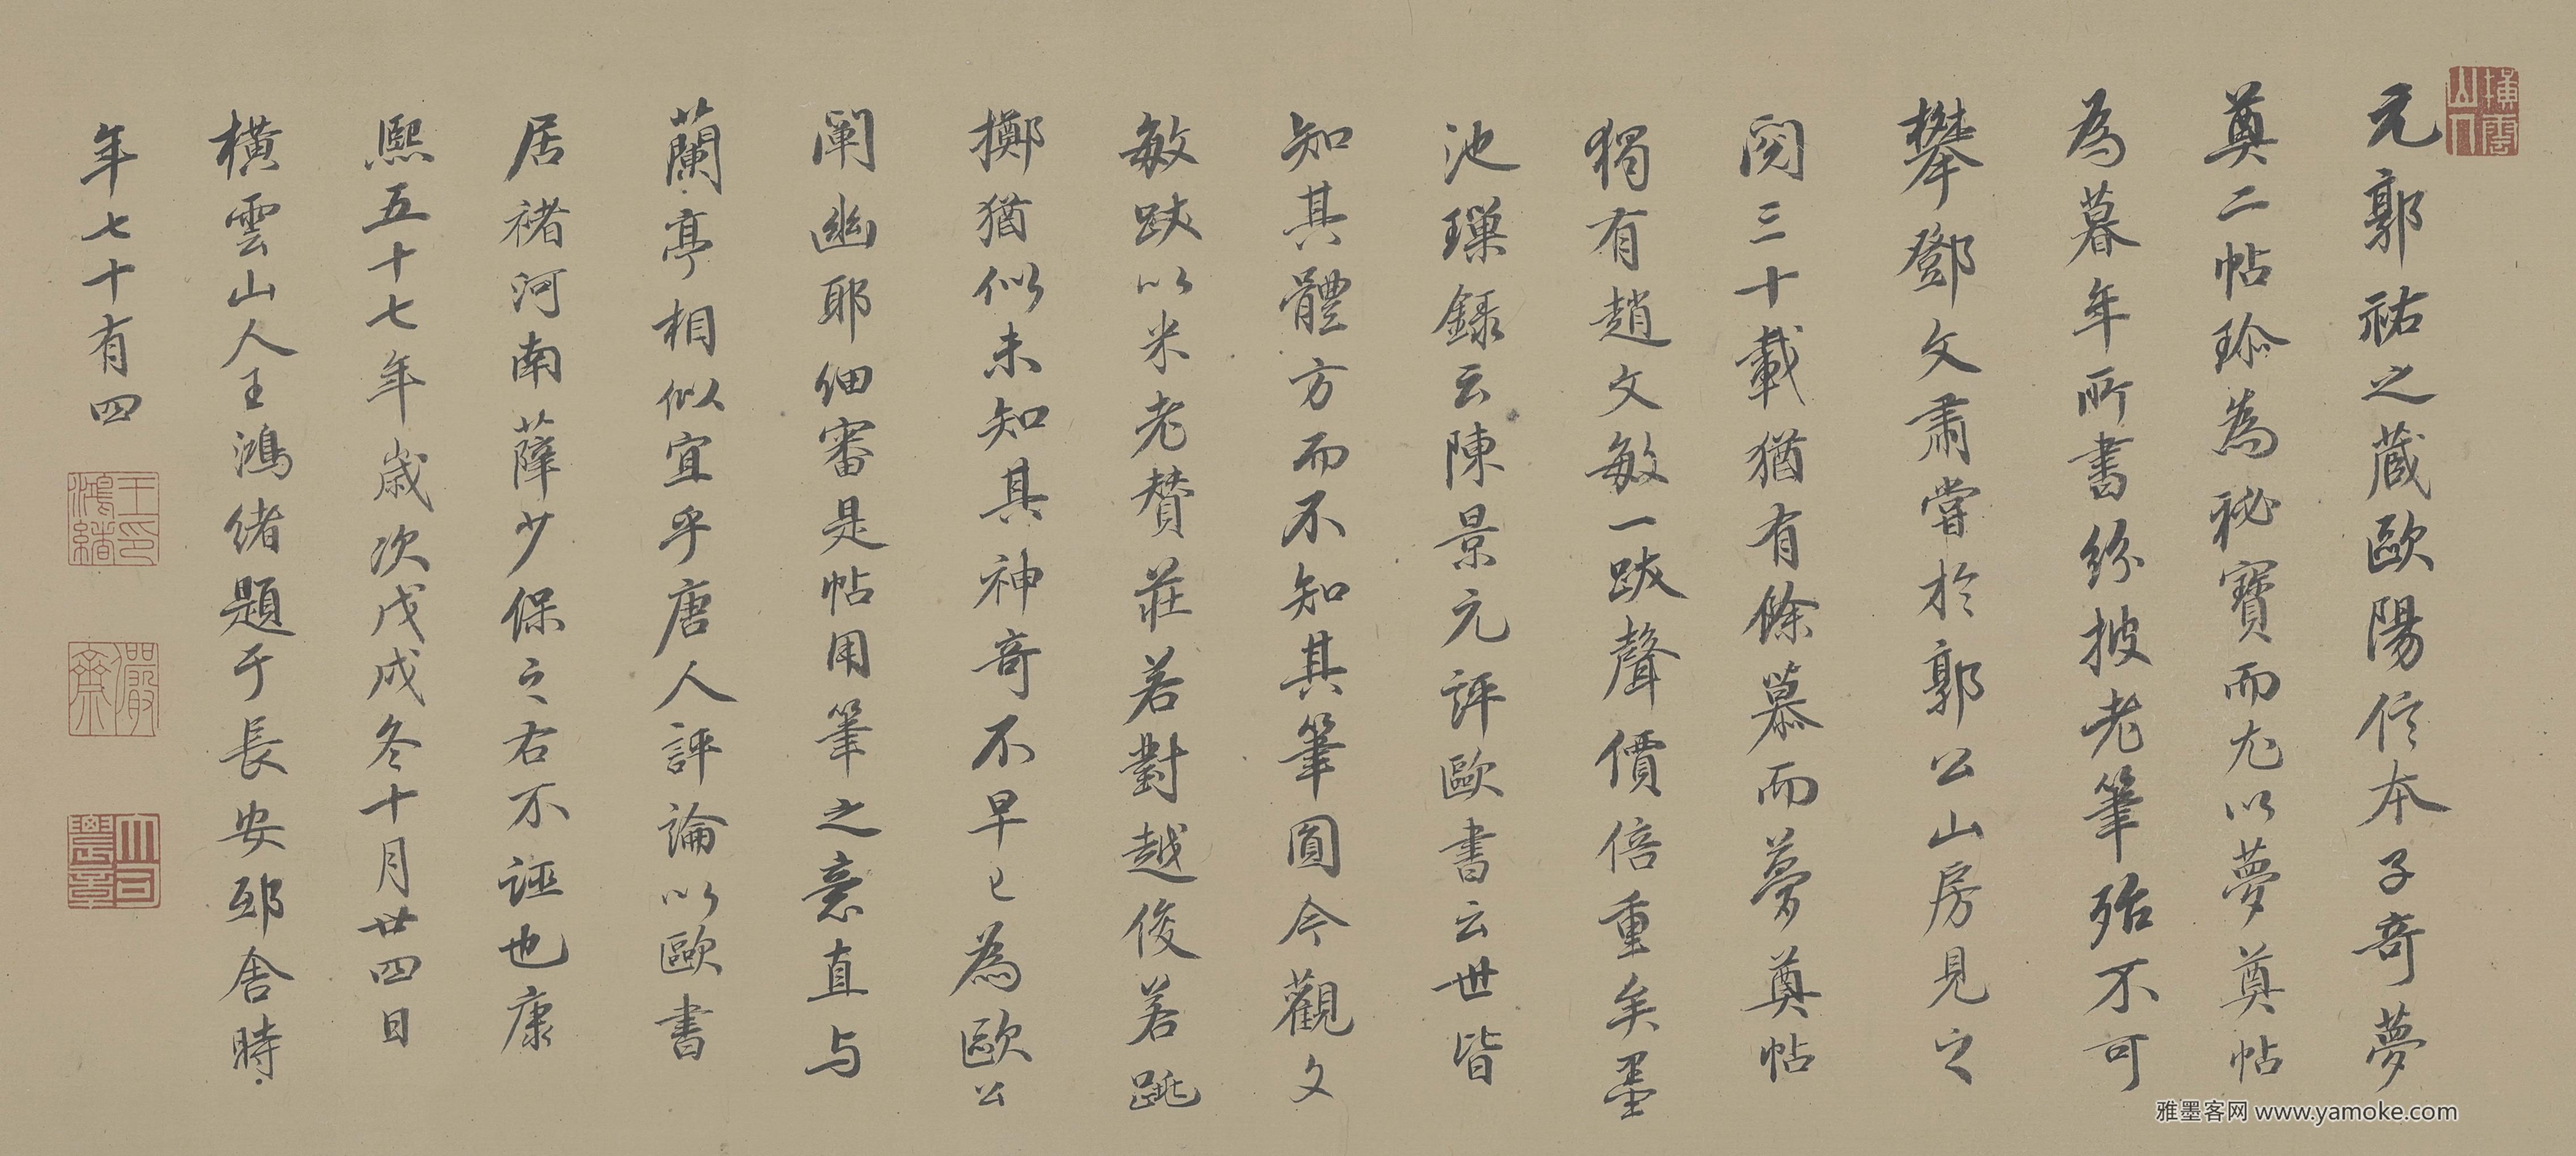 橫雲
山人
元郭祐之蔵歐陽信本子奇夢
奠二帖珍為秘寶而尤以夢奠帖
為暮年所書紛披老筆殆不可
攀鄧文肅嘗於郭公山房見之
閱三十載猶有餘慕而夢奠帖
獨有趙文敏一跋聲價倍重矣墨
池璅錄云陳景元評歐書云世皆
知其體方而不知其筆圓今觀文
敏跋以米老贊莊若對越俊若跳
擲猶似未知其神奇不早已為歐公
闡幽耶細審是帖用筆之意直与
蘭亭相似宜乎唐人評論以歐書
居褚河南薛少保之右不誣也康
熙五十七年歲次戊戌冬十月廿四日
橫雲山人王鴻緒題于長安邸舍時
年七十有四
王印
鴻緒
儼
齋
大司
農章
雅墨客网 www.yamoke.com